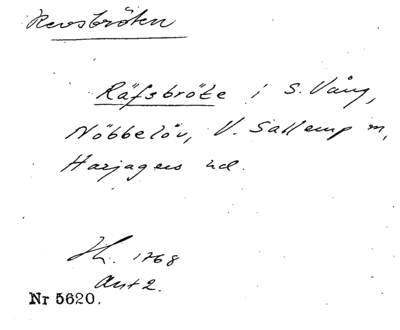 Revsbröten
Räfsbröte i S. Vång,
Nöbbelöv, V. Sallerup m,
Harjagers hd.
1768
Akt 2.
Nr 5620.